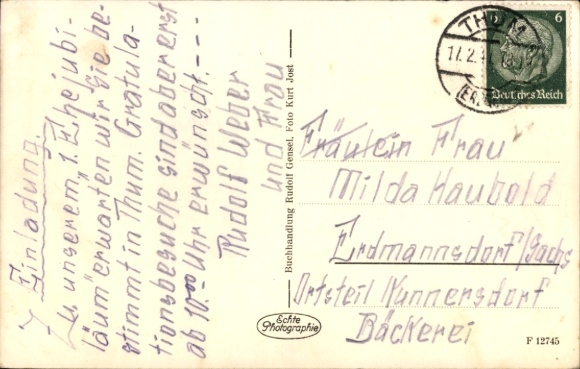 Einladung.
Zu unserem 1. Ehejubi-
läum erwarten wir Sie be-
stimmt in Thum. Gratula-
tionsbesuche sind aber erst
ab 10.00 Uhr erwünscht. ---
Rudolf Weber
und Frau
Buchhandlung Rudolf Gensel, Foto Kurt Jost
Echte
Photographie
THUM
17.2.
(ER
6 6
Deutsches Reich
Fräulein Frau
Milda Haubold
Erdmannsdorf/Sachs
Ortsteil Kunnersdorf
Bäckerei
F 12745